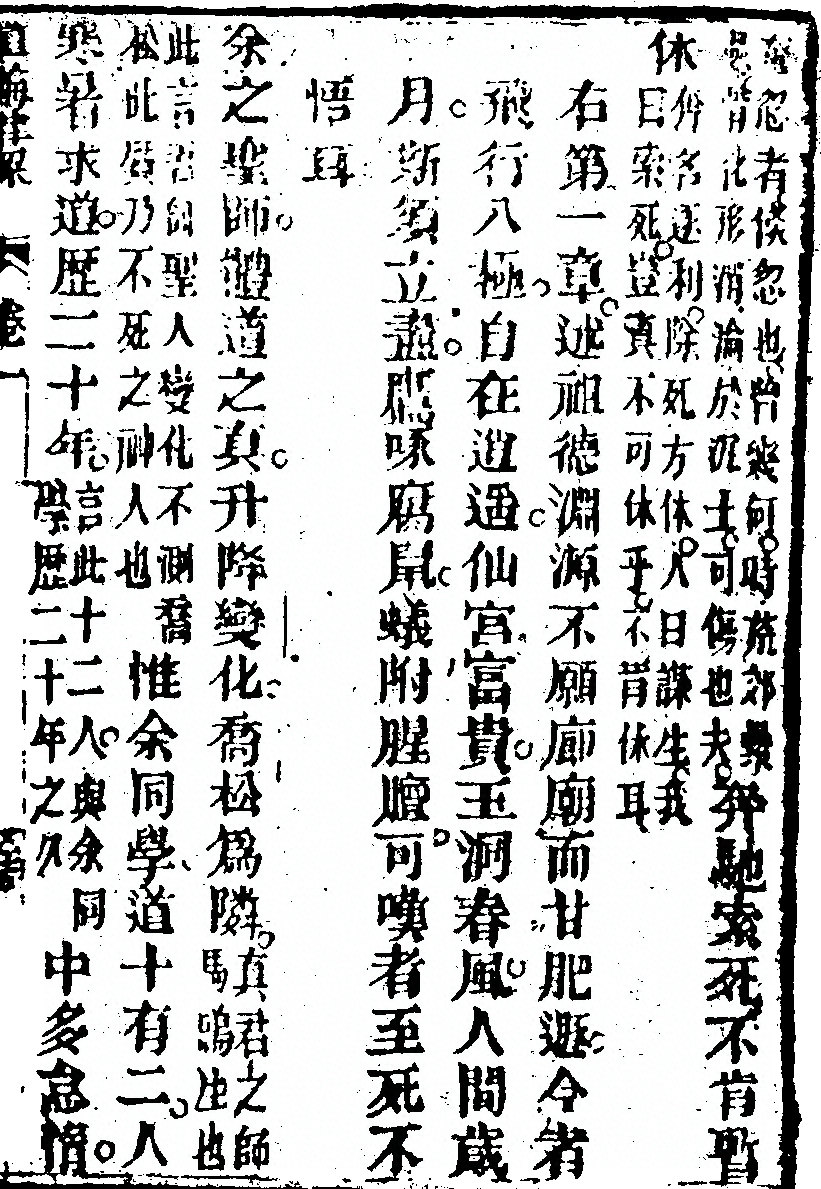 忽者倐忽也曾幾何時荒郊纍
皆化形消淪於沉土可傷也夫奔馳索死不肯暫
休
奔名逐利除死方休人日謀生我
日索死豈真不可休乎不肯休耳
右第一章述祖德淵源不願廊廟而甘肥遯今者
飛行八極自在逍遙仙宮富貴玉洞春風人間歲
月斯須立盡鴟啄腐鼠蟻附腥羶可嘆者至死不
悟耳
余之聖師體道之真升降變化喬松爲隣
真君之師
馬鳴生也
此言君師聖人變化不測喬
松此質乃不死之神人也
惟余同學道十有二人
寒暑求道歷二十年
言此十二人與余同
學歷二十年之久
中多怠惰
卷一